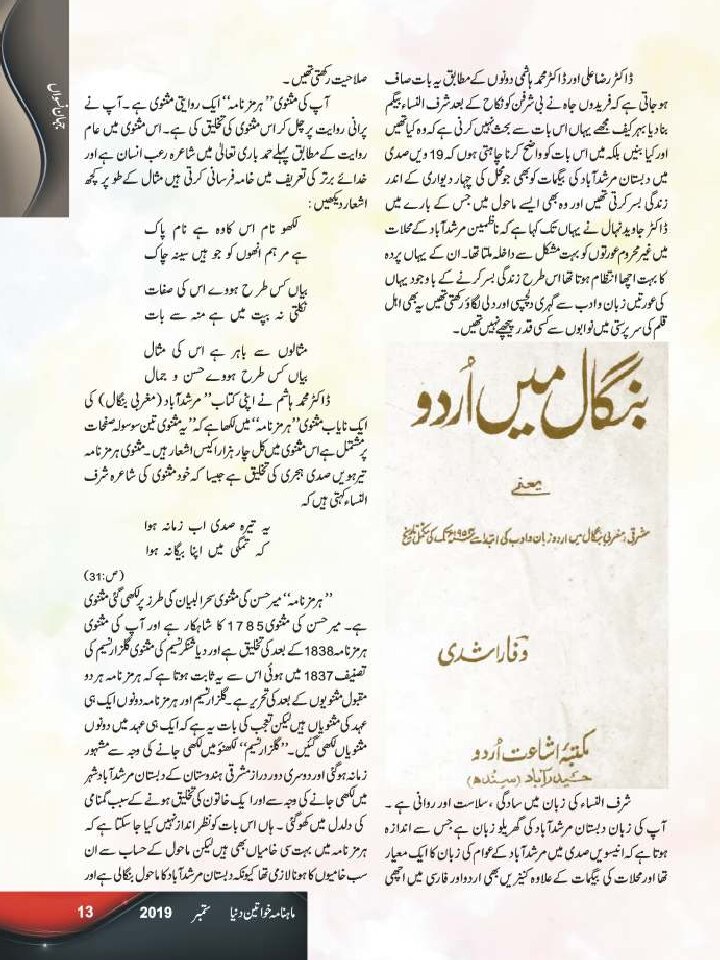 جہان نسواں
ڈاکٹر رضا علی اور ڈاکٹر محمد ہاشمی دونوں کے مطابق یہ بات صاف
ہوجاتی ہے کہ فریدوں جاہ نے بی شرفن کو نکاح کے بعد شرف النساء بیگم
بنادیا بہرکیف مجھے یہاں اس بات سے بحث نہیں کرنی ہے کہ وہ کیا تھیں
اور کیا بنیں بلکہ میں اس بات کو واضح کرنا چاہتی ہوں کہ 19 ویں صدی
میں دبستان مرشدآباد کی بیگمات کو بھی جو محل کی چہار دیواری کے اندر
زندگی بسر کرتی تھیں اور وہ بھی ایسے ماحول میں جس کے بارے میں
ڈاکٹر جاوید نہال نے یہاں تک کہا ہے کہ ناظمین مرشدآباد کے محلات
میں غیر محروم عورتوں کو بہت مشکل سے داخلہ ملتا تھا۔ ان کے یہاں پردہ
کا بہت اچھا انتظام ہوتا تھا اس طرح زندگی بسر کرنے کے باوجود یہاں
کی عورتیں زبان و ادب سے گہری دلچسپی اور دلی لگاؤ رکھتی تھیں یہ بھی اہل
قلم کی سرپرستی میں نوابوں سے کسی قدر پیچھے نہیں تھیں۔
بنگال میں اُردو
یعنے
مشرقی و مغربی بنگال میں اردو زبان و ادب کی ابتدا سے ۱۹۵۴ء تک کی مکمل تاریخ
وفا راشدی
مکتبۂ اشاعت اُردو
حیدرآباد (سندھ)
شرف النساء کی زبان میں سادگی، سلاست اور روانی ہے۔
آپ کی زبان دبستان مرشدآباد کی گھریلو زبان ہے جس سے اندازہ
ہوتا ہے کہ انیسویں صدی میں مرشدآباد کے عوام کی زبان کا ایک معیار
تھا اور محلات کی بیگمات کے علاوہ کنیزیں بھی اردو اور فارسی میں اچھی
صلاحیت رکھتی تھیں۔
آپ کی مثنوی ”ہرمز نامہ“ ایک روایتی مثنوی ہے۔ آپ نے
پرانی روایت پر چل کر اس مثنوی کی تخلیق کی ہے۔ اس مثنوی میں عام
روایت کے مطابق پہلے حمد باری تعالیٰ میں شاعرہ رعب انسان ہے اور
خدائے برتر کی تعریف میں خامہ فرسانی کرتی ہیں مثال کے طور پر کچھ
اشعار دیکھیں:
لکھو نام اس کا وہ ہے نام پاک
ہے مرہم انھوں کو جو ہیں سینہ چاک
بیاں کس طرح ہووے اس کی صفات
نکلتی نہ ہیبت میں ہے منہ سے بات
مثالوں سے باہر ہے اس کی مثال
بیاں کس طرح ہووے حسن و جمال
ڈاکٹر محمد ہاشم نے اپنی کتاب ”مرشدآباد (مغربی بنگال) کی
ایک نایاب مثنوی ”ہرمز نامہ“ میں لکھا ہے کہ ”یہ مثنوی تین سو سولہ صفحات
پر مشتمل ہے اس مثنوی میں کل چار ہزار اکیس اشعار ہیں۔ مثنوی ہرمز نامہ
تیرہویں صدی ہجری کی تخلیق ہے جیسا کہ خود مثنوی کی شاعرہ شرف
النساء کہتی ہیں کہ
یہ تیرہ صدی اب زمانہ ہوا
کہ تمگی میں اپنا بیگانہ ہوا
(ص:31)
”ہرمز نامہ“ میر حسن کی مثنوی سحر البیان کی طرز پر لکھی گئی مثنوی
ہے۔ میر حسن کی مثنوی 1785 کا شاہکار ہے اور آپ کی مثنوی
ہرمز نامہ 1838 کے بعد کی تخلیق ہے اور دیا شنکر نسیم کی مثنوی گلزار نسیم کی
تصنیف 1837 میں ہوئی اس سے یہ ثابت ہوتا ہے کہ ہرمز نامہ ہر دو
مقبول مثنویوں کے بعد کی تحریر ہے۔ گلزار نسیم اور ہرمز نامہ دونوں ایک ہی
عہد کی مثنویاں ہیں لیکن تعجب کی بات یہ ہے کہ ایک ہی عہد میں دونوں
مثنویاں لکھی گئیں۔ ”گلزار نسیم“ لکھنؤ میں لکھی جانے کی وجہ سے مشہور
زمانہ ہوگئی اور دوسری دور دراز مشرقی ہندوستان کے دبستان مرشدآباد شہر
میں لکھی جانے کی وجہ سے اور ایک خاتون کی تخلیق ہونے کے سبب گمنامی
کی دلدل میں کھو گئی۔ ہاں اس بات کو نظر انداز نہیں کیا جاسکتا ہے کہ
ہرمز نامہ میں بہت سی خامیاں بھی ہیں لیکن ماحول کے حساب سے ان
سب خامیوں کا ہونا لازمی تھا کیونکہ دبستان مرشدآباد کا ماحول بنگالی ہے اور
ماہنامہ خواتین دنیا ستمبر 2019 13